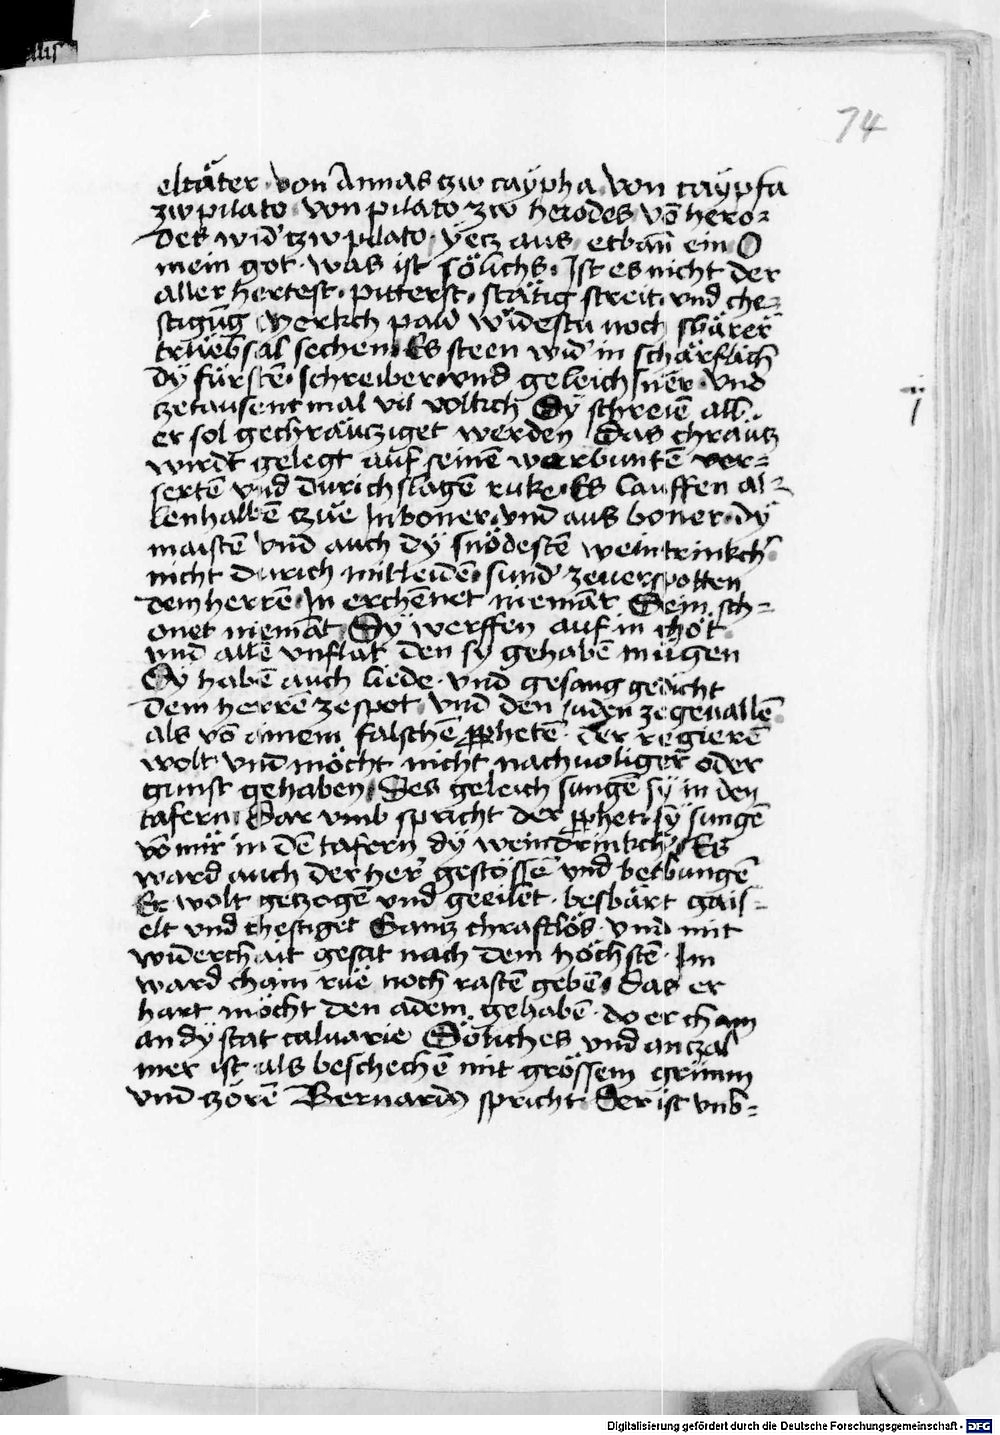 74
eltäter · von Annas czw caÿpha von caÿpfa
zw pilato · von pilato zw herodes vō hero⸗
des wid' czw pilato · yecz aus etban ein O
mein got · was ist sölichs · Ist es nicht der
aller hertest · pitterst · stätig streit · und che⸗
stigūg Merkch paw widestu noch sbärer
trüebsal sechen Es steen wid' in schärflich
dÿ fürstē · schreiber und geleichsner · und
czetausent mal vil voltich Dÿ schreiē all
er sol gechräucziget werden Das chräucz
wirdt gelegt auf seinē verbuntē ver⸗
sertē und durichslagē ruke · Es lauffen al⸗
lenhalbē czue Inboner · und aus boner · dÿ
maistē und auch dÿ snödestē weintrinkch'
nicht durich mitleidē · sund' zeverspotten
dem herrē · In erchēnet niemār Sein sch⸗
onet niemāt Dÿ werffen auf in chöt
und allē unflat den sy gehabē mügen
Dÿ habē auch liede · und gesang gedicht
dem herrē zespot und den juden zegevallē
als vō ainem falschē ꝓphetē · der regierē
wolt und möcht nicht nachvoliger oder
gunst gehaben · Des geleich sungē sÿ in den
tafern Dar umb spricht der ꝓphet · sÿ sungē
vō mir in dē tafern dÿ weintrinkch' Es
ward auch der her' gestössē und betbungē
Er wolt geczogē und geeilet · besbärt gais⸗
elt und chestiget Gancz chraftlös · und mit
widerchait gesat nach dem höchstē · Im
ward chain rüe noch rastē gebē · das er
hart möcht den adem gehabē · do er cham
an dÿ stat calvarie Söliches und an czal
mer ist als beschechē mit grössem grimm
und czorē Bernard' spricht Der ist unb⸗
Digitalisierung gefördert durch die Deutsche Forschungsgemeinschaft - DFG